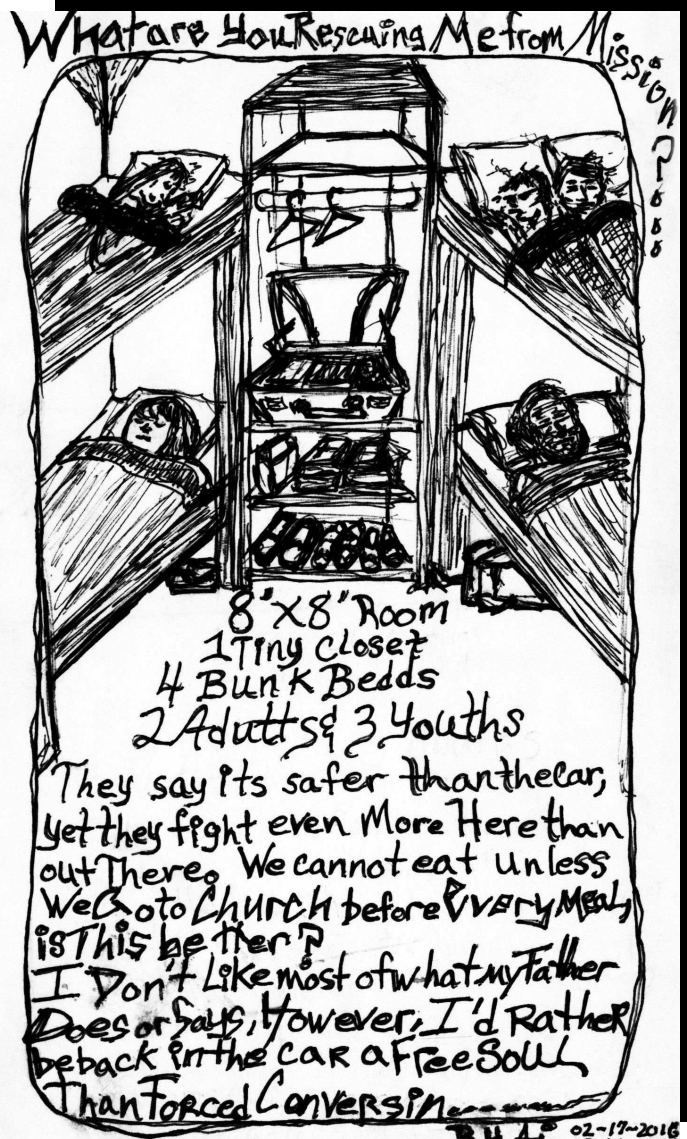 What are You Rescuing Me from Mission?...
8"X8" Room
1 Tiny closet
4 Bunk Bedds
2 Adutts & 3 Youths
They say its safer thanthecar,
yet they fight even More Here than
out There. We cannot eat unless
We Go to Church before Every Meal,
is This better?
I Don't Like most of what my Father
Does or Says, However, I'd Rather
be back in the car a Free SouL
Than Forced Conversin....
02-17-2016